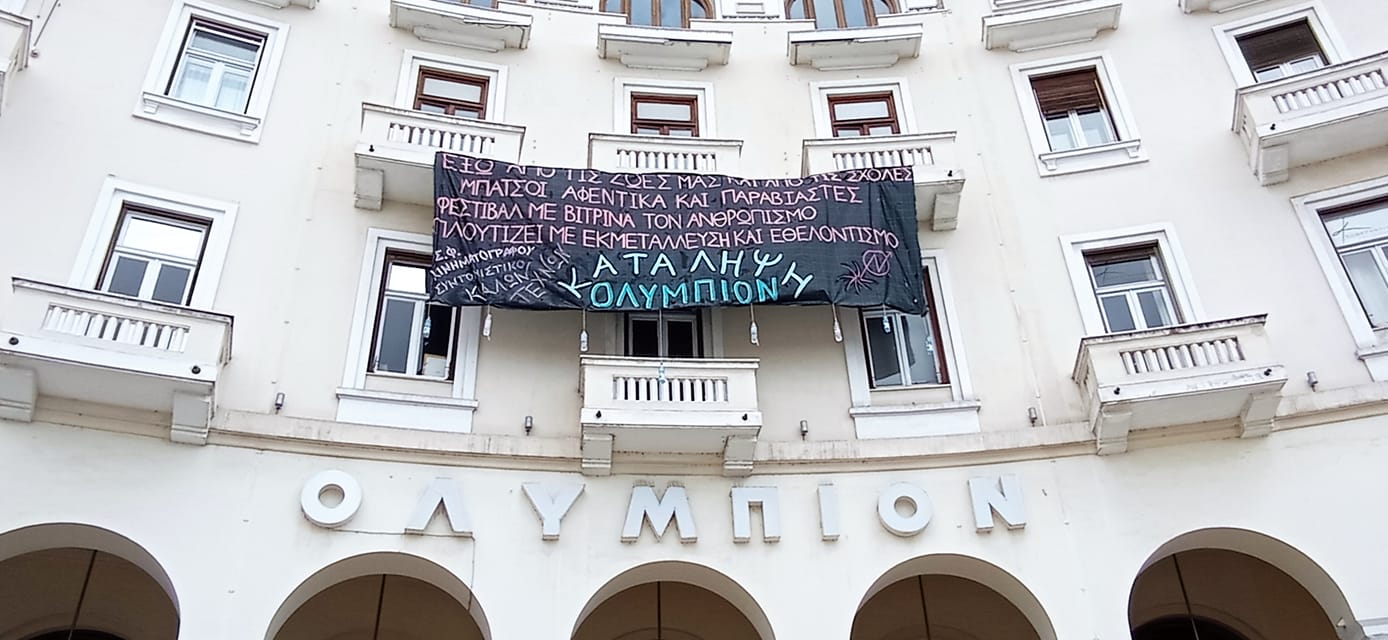 ΕΞΩ ΑΠΟ ΤΙΣ ΖΩΕΣ ΜΑΣ ΚΑΙ ΑΠΟ ΤΙΣ ΣΧΟΛΕΣ
ΜΠΑΤΣΟΙ ΑΦΕΝΤΙΚΑ ΚΑΙ ΠΑΡΑΒΙΑΣΤΕΣ
ΦΕΣΤΙΒΑΛ ΜΕ ΒΙΤΡΙΝΑ ΤΟΝ ΑΝΘΡΩΠΙΣΜΟ
ΠΛΟΥΤΙΖΕΙ ΜΕ ΕΚΜΕΤΑΛΛΕΥΣΗ ΚΑΙ ΕΘΕΛΟΝΤΙΣΜΟ
Σ.Φ.
ΚΙΝΗΜΑΤΟΓΡΑΦΟΥ
ΣΥΝΤΟΝΙΣΤΙΚΟ
ΚΑΛΩΝ
ΤΕΧΝΩΝ
ΚΑΤΑΛΗΨΗ
ΟΛΥΜΠΙΟΝ
ΟΛΥΜΠΙΟΝ